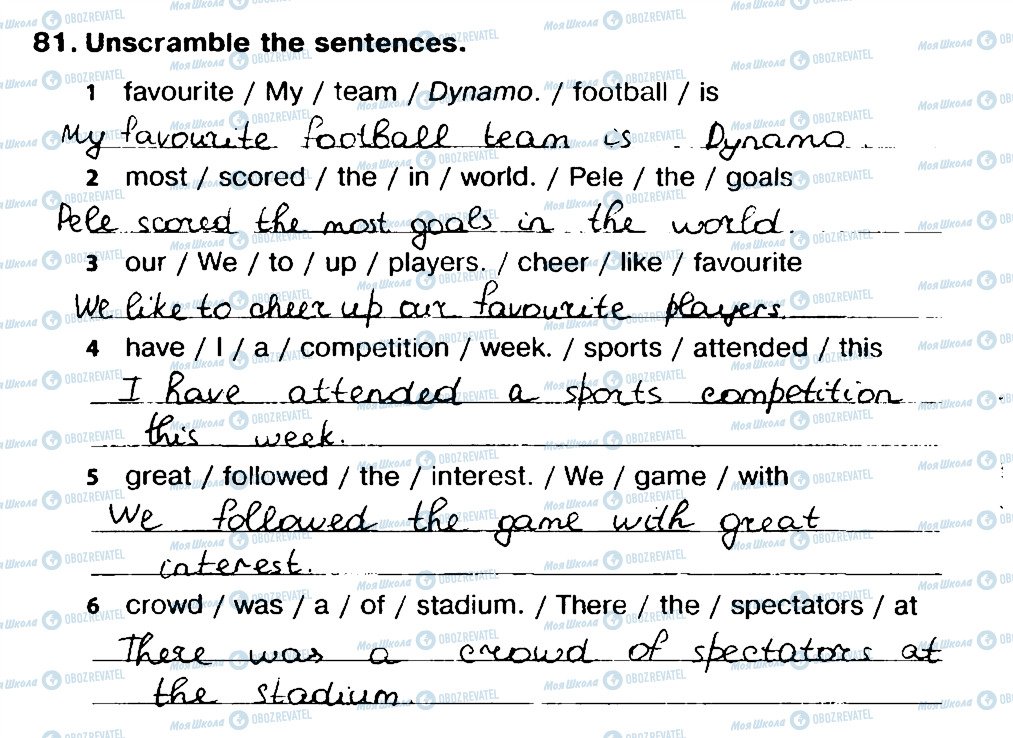 81. Unscramble the sentences.
1 favourite / My / team / Dynamo. / football / is
My favourite football team is Dynamo.
2 most / scored / the / in / world. / Pele / the / goals
Pele scored the most goals in the world.
3 our / We / to / up / players. / cheer / like / favourite
We like to cheer up our favourite players.
4 have / I / a / competition / week. / sports / attended / this
I have attended a sports competition
this week.
5 great / followed / the / interest. / We / game / with
We followed the game with great
interest.
6 crowd / was / a / of / stadium. / There / the / spectators / at
There was a crowd of spectators at
the stadium.